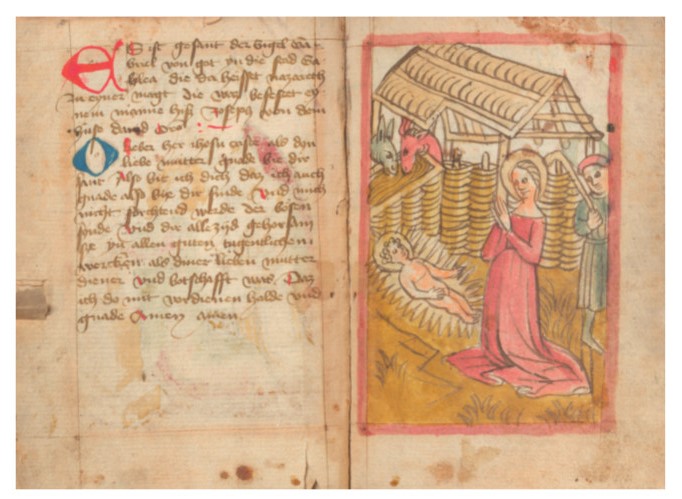 ES ist gesant der Engel Ga-
briel von got yn die stad Ga-
lilea die do heisset nazareth
zu eyner magt die was befestet ey-
nem manne hiß Joseph von dem
huse david
O lieber her ihesu criste als din
liebe mutter gnade bie dir
fant Also bit ich dich daz ich auch
gnade also bie dir finde und mich
nicht forchtend werde der bosen
sunde und dir alle zijd gehorsam
sye yn allen guten tugentlichen
wercken als diner lieben mutter
diener und botschafft was Daz
ich do mit verdienen halde und
gnade Amen amen